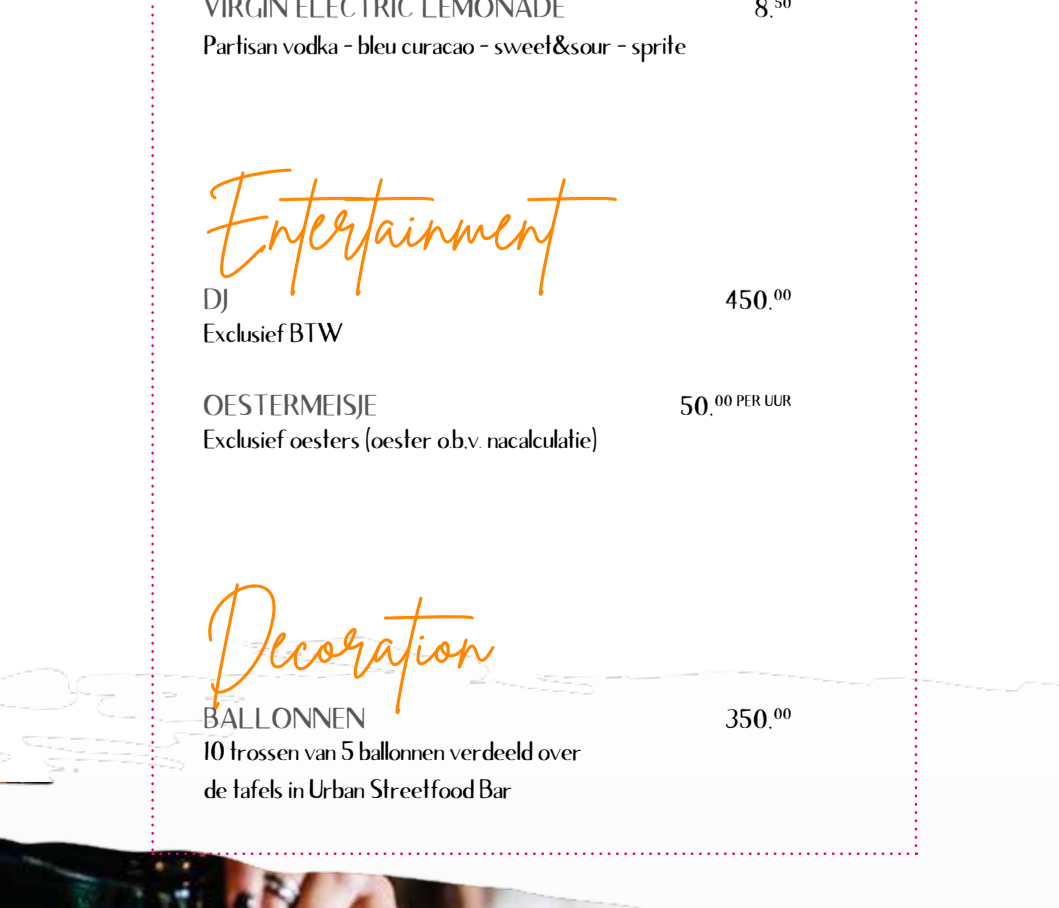 VIRGIN ELECTRIC LEMONADE 8.50
Partisan vodka - bleu curacao - sweet&sour - sprite
Entertainment
DJ 450.00
Exclusief BTW
OESTERMEISJE 50.00 PER UUR
Exclusief oesters (oester o.b.v. nacalculatie)
Decoration
BALLONNEN 350.00
10 trossen van 5 ballonnen verdeeld over
de tafels in Urban Streetfood Bar